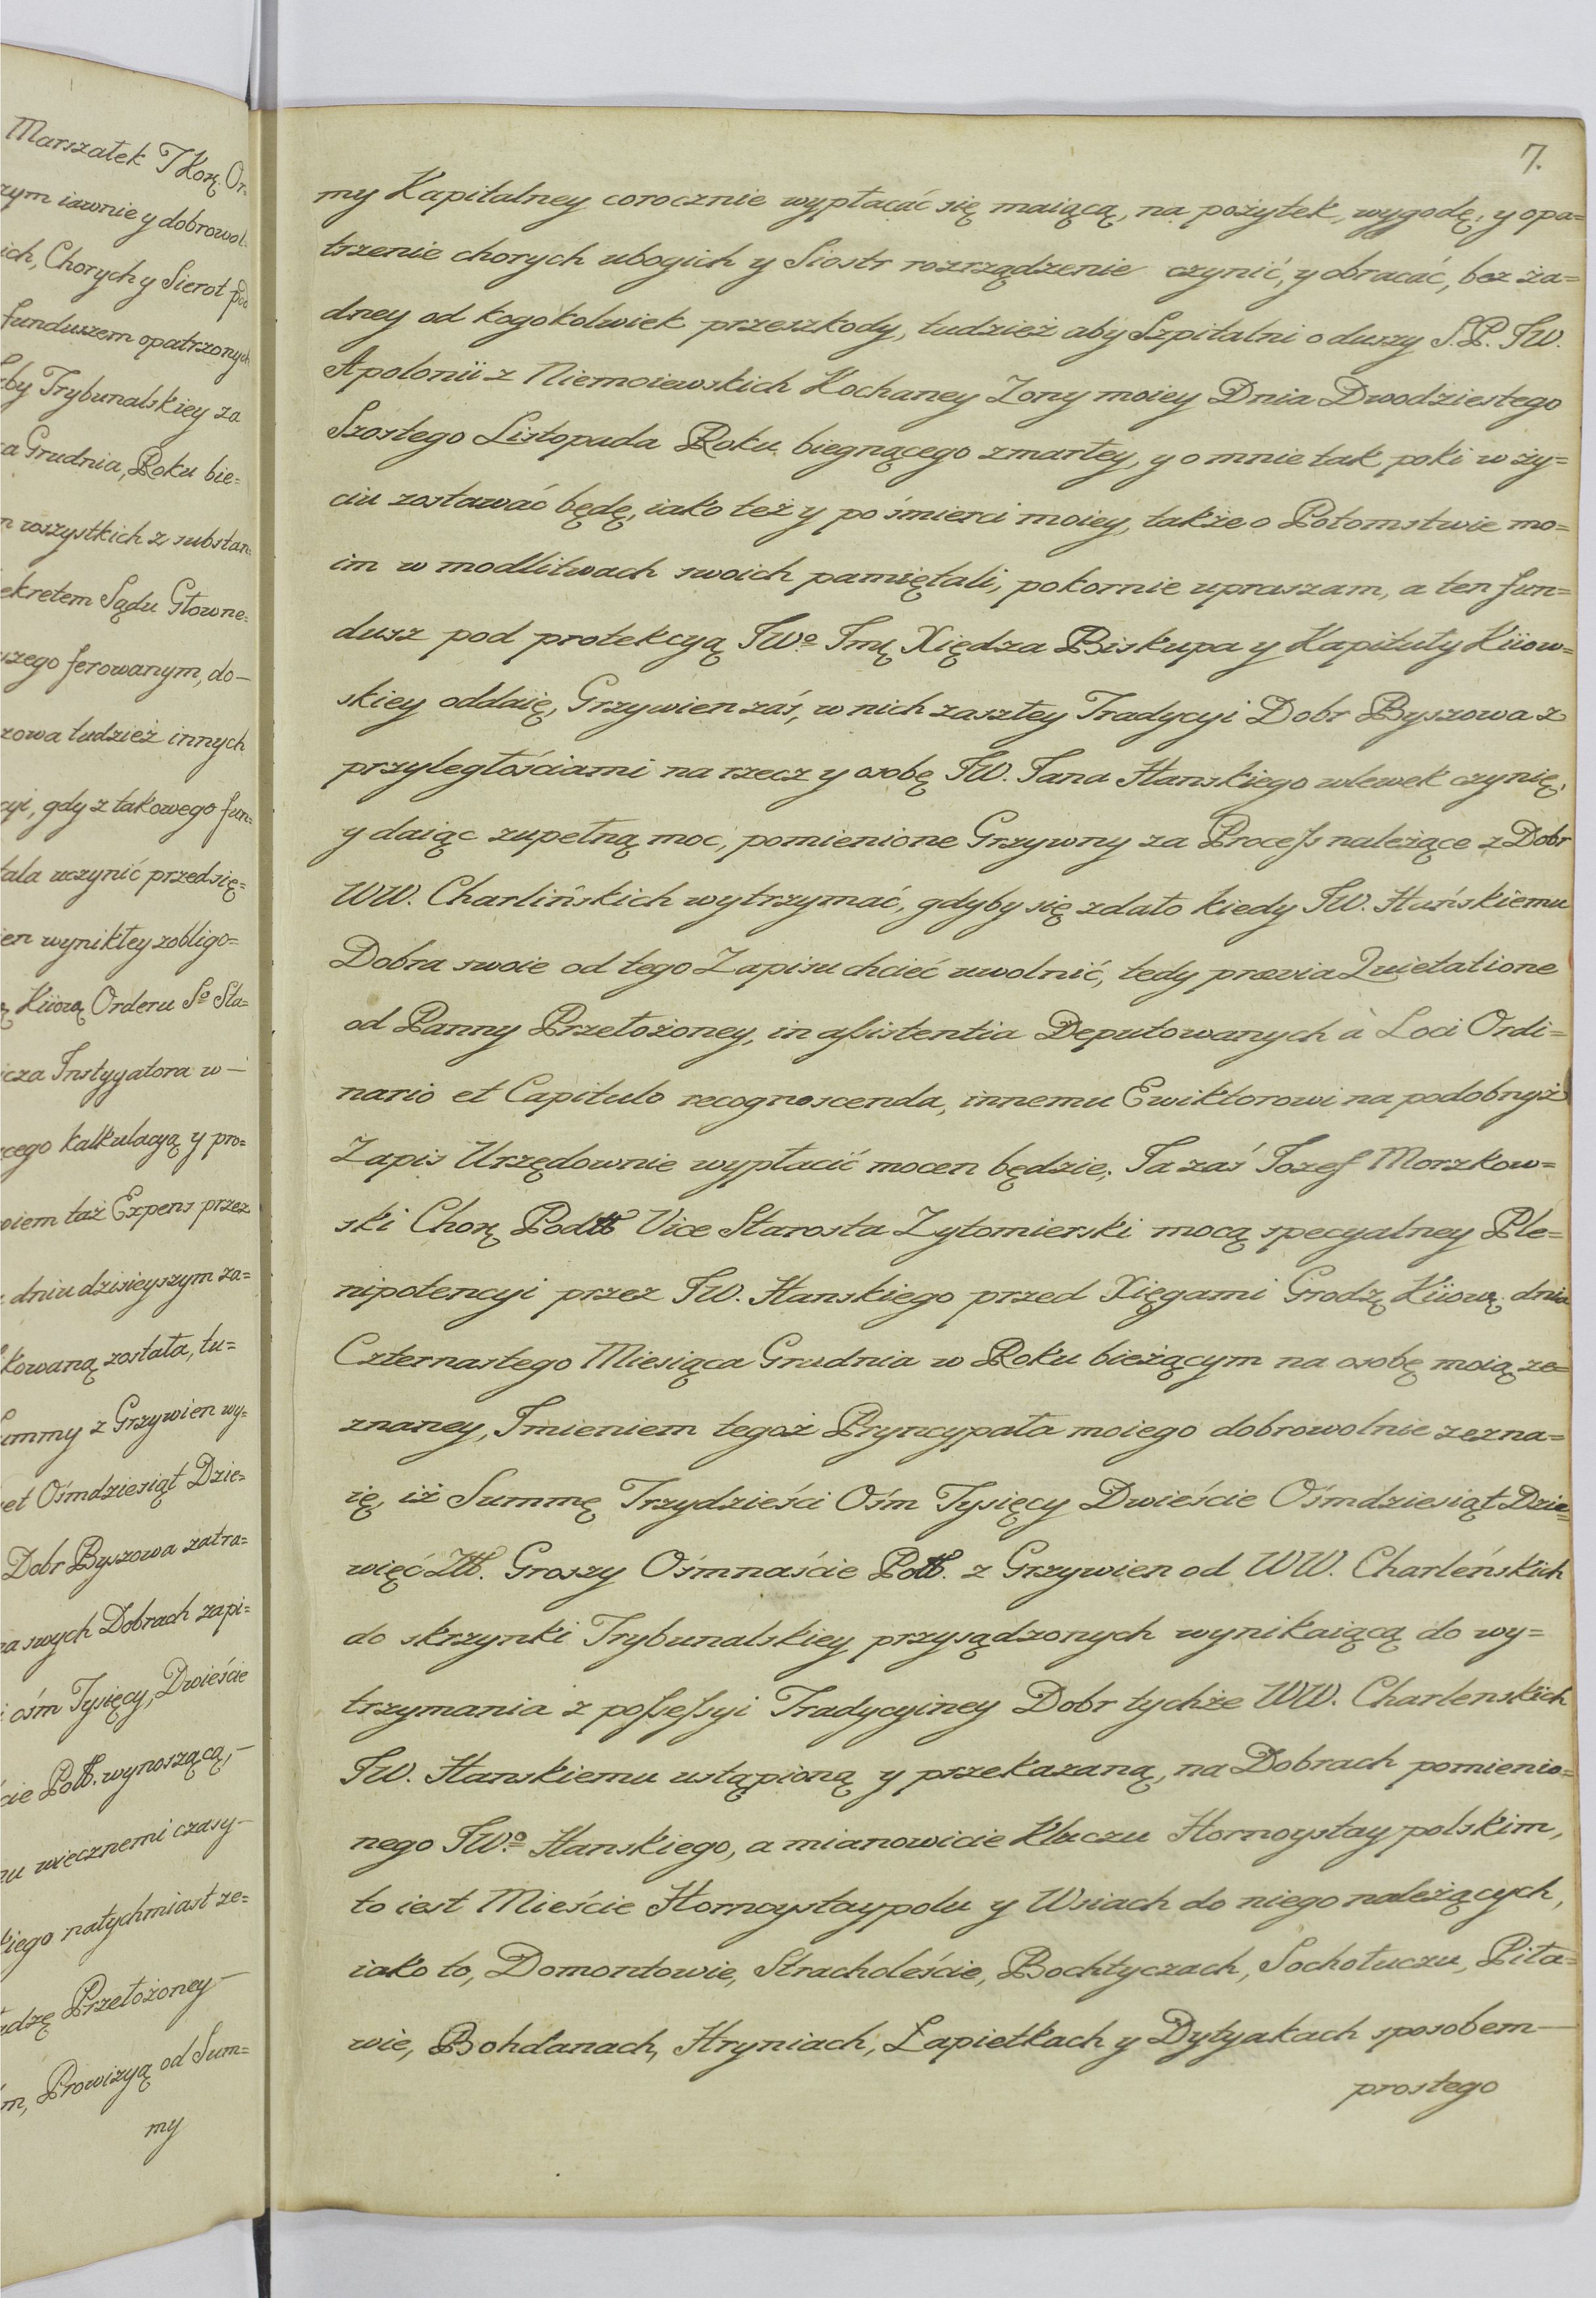 Marszałek J Korą. Or.
rym iawnie y dobrowol.
ich, Chorych y Sierot
funduszem opatrzonych
by Trybunalskiey za
a Grudnia, Roku bie=
wszystkich z substan=
ekretem Sądu Głowne=
szego ferowanym, do—
zowa tudzież innych
cyi, gdy z takowego fun=
tala uczynić przedsię=
en wynikłey zobligo=
Kiiową Orderu So Sta=
icza Instygatora w—
cego kalkulacyą y pro=
wiem taż Expens przez
dniu dzisieyszym za=
kowaną została, tu=
Summy z Grzywien wy=
et Ośmdziesiąt Dzie=
Dobr Byszowa zatra=
na swych Dobrach zapi=
ośm Tysięcy, Dwieście
cie Poltt. wynoszącą,—
nu wiecznemi czasy—
kiego natychmiast ze=
adzę Przełożoney—
m, Prowizyą od Sum=
my
7.
my Kapitalney corocznie wypłacać się maiącą, na pożytek, wygodę, y opa=
trzenie chorych ubogich y Siostr rozrządzenie czynić, y obracać, bez ża=
dney od kogokolwiek przeszkody, tudzież aby Szpitalni o duszy S.P. JW.
Apolonii z Niemoiewskich Kochaney Zony moiey Dnia Dwodziestego
Szostego Listopada Roku biegnącego zmarłey, y o mnie tak poki w ży=
ciu zostawać będę, iako też y po śmierci moiey, także o Potomstwie mo=
im w modlitwach swoich pamiętali, pokornie upraszam, a ten fun=
dusz pod protekcyą JWo Jmę Xiędza Biskupa y Kapituły Kiiow=
skiey oddaię, Grzywien zaś, w nich zaszłey Tradycyi Dobr Byszowa z
przyległościami na rzecz y osobę JW. Jana Hanskiego wlewek czynię,
y daiąc zupełną moc, pomienione Grzywny za Process należące z Dobr
WW. Charlińskich wytrzymać, gdyby się zdało kiedy JW. Hańskiemu
Dobra swoie od tego Zapisu chcieć uwolnić, tedy prævia Quietatione
od Panny Przełożoney, in assistentia Deputowanych à Loci Ordi=
nario et Capitulo recognoscenda, innemu Ewiktorowi na podobnyż
Zapis Urzędownie wypłacić mocen będzie; Ja zaś Jozef Morzkow=
ski Chorą Podtt Vice Starosta Zytomierski mocą specyalney Ple=
nipotencyi przez JW. Hanskiego przed Xięgami Grodzą Kiiową. dnia
Czternastego Miesiąca Grudnia w Roku bieżącym na osobę moią ze=
znaney, Jmieniem tegoż Pryncypała moiego dobrowolnie zezna=
ię, iż Summę Trzydzieści Ośm Tysięcy Dwieście Ośmdziesiąt Dzie=
więć Ztt. Groszy Ośmnaście Poltt. z Grzywien od WW. Charleńskich
do skrzynki Trybunalskiey przysądzonych wynikaiącą do wy=
trzymania z possessyi Tradycyiney Dobr tychże WW. Charlenskich
JW. Hanskiemu ustąpioną y przekazaną, na Dobrach pomienio=
nego JWo Hanskiego, a mianowicie Kluczu Hornoystaypolskim,
to iest Mieście Hornoystaypolu y Wsiach do niego należących,
iako to, Domontowie, Stracholeście, Bochtyczach, Sochołuczu, Pita=
wie, Bohdanach, Hryniach, Łapietkach y Dytyakach sposobem—
prostego